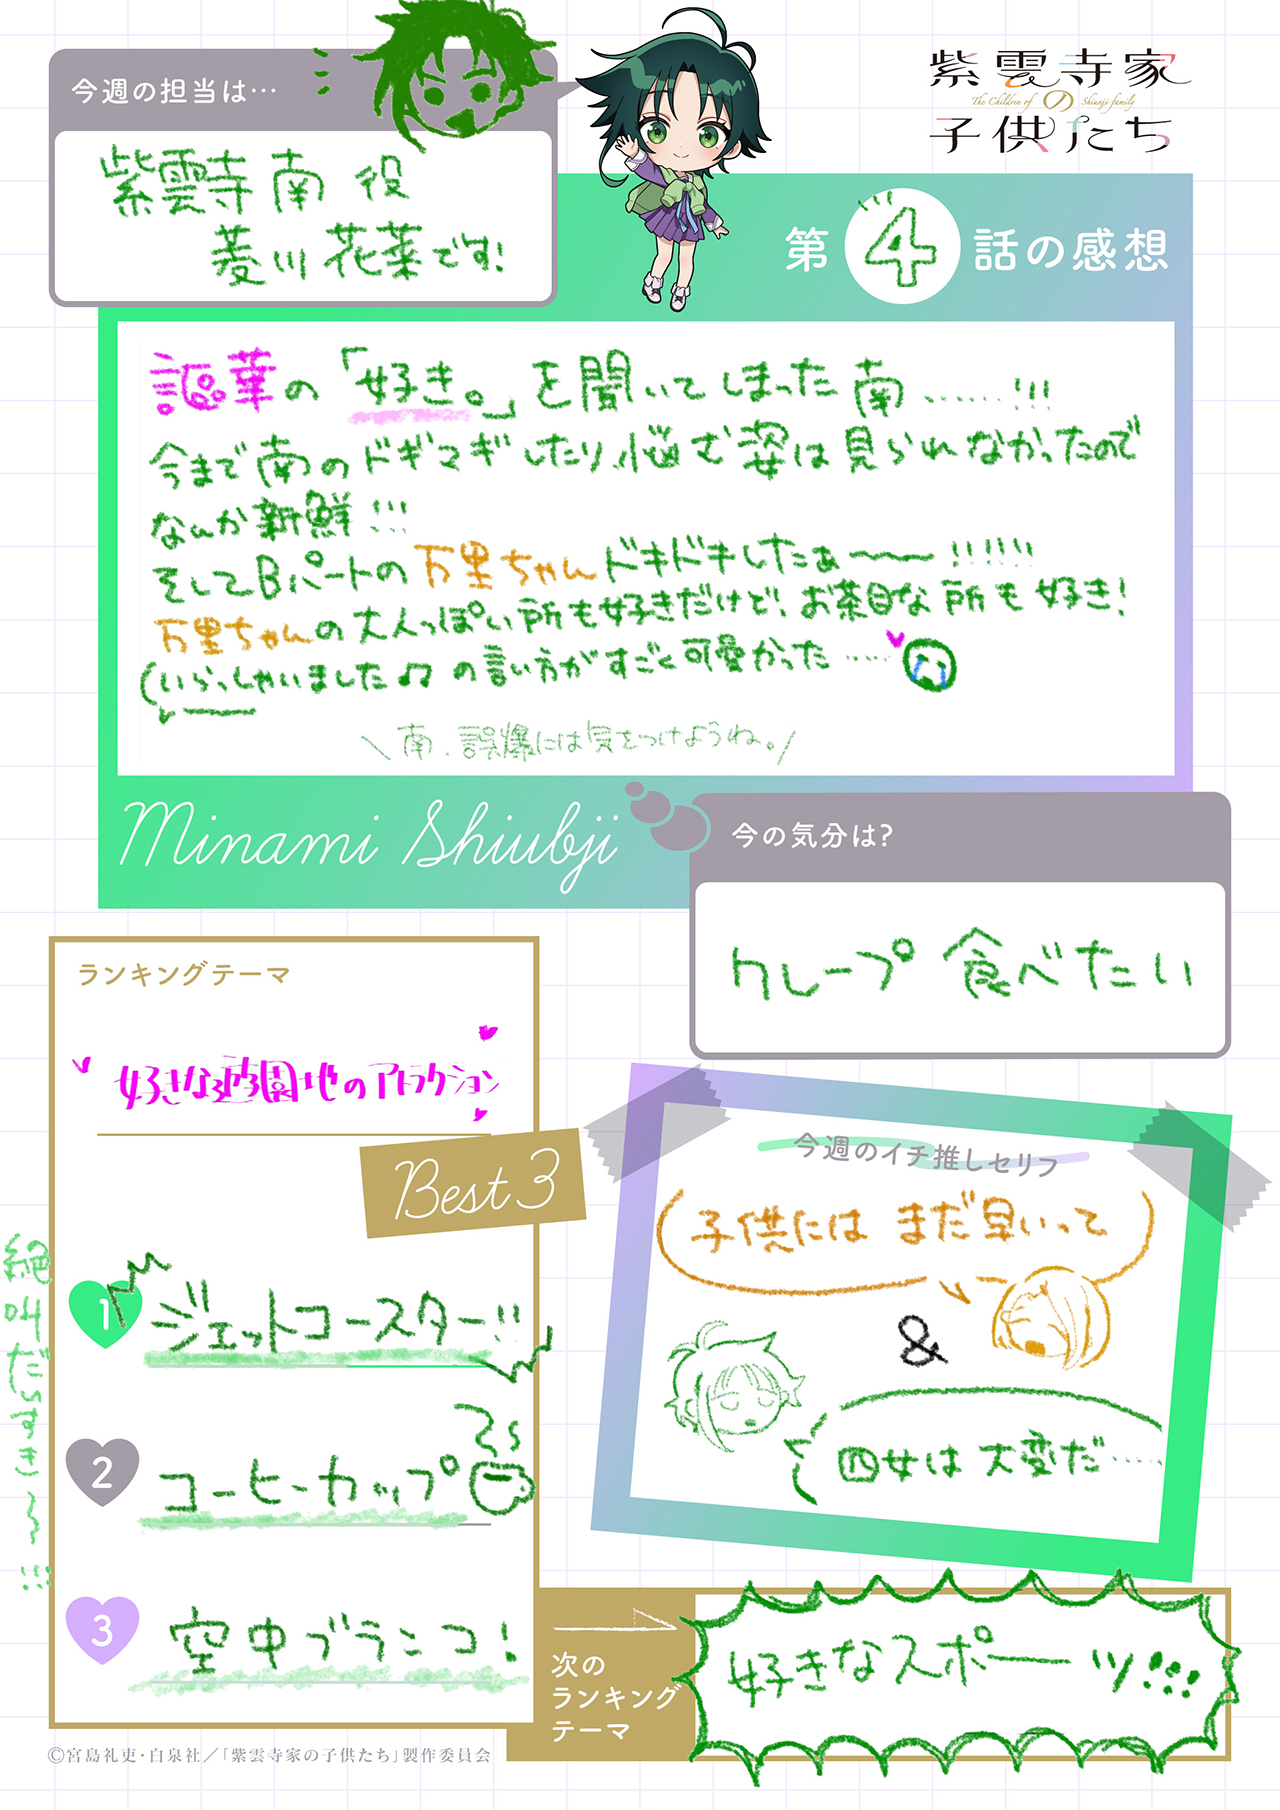 今週の担当は…
紫雲寺 南 役
菱川 花菜です!
紫雲寺家
The Children of の Shiunji family
子供たち
第4話の感想
謳華の「好き。」を聞いてしまった南……!!!
今まで南のドギマギしたり、悩む姿は見られなかったので
なんか新鮮!!!
そしてBパートの万里ちゃんドキドキしたぁ〜〜!!!!!!
万里ちゃんの大人っぽい所も好きだけど!お茶目な所も好き!
(いらっしゃいました♫の言い方がすごく可愛かった……
\南、誤爆には気をつけようね。/
Minami Shiubji
今の気分は?
クレープ 食べたい
ランキングテーマ
好きな遊園地のアトラクション
Best 3
1 ジェットコースター!!
2 コーヒーカップ
3 空中ブランコ!
絶叫だいすき〜〜!!!
今週のイチ推しセリフ
子供にはまだ早いって
&
四女は大変だ……
次の
ランキング
テーマ
好きなスポーツ!!!
©宮島礼吏・白泉社／「紫雲寺家の子供たち」製作委員会